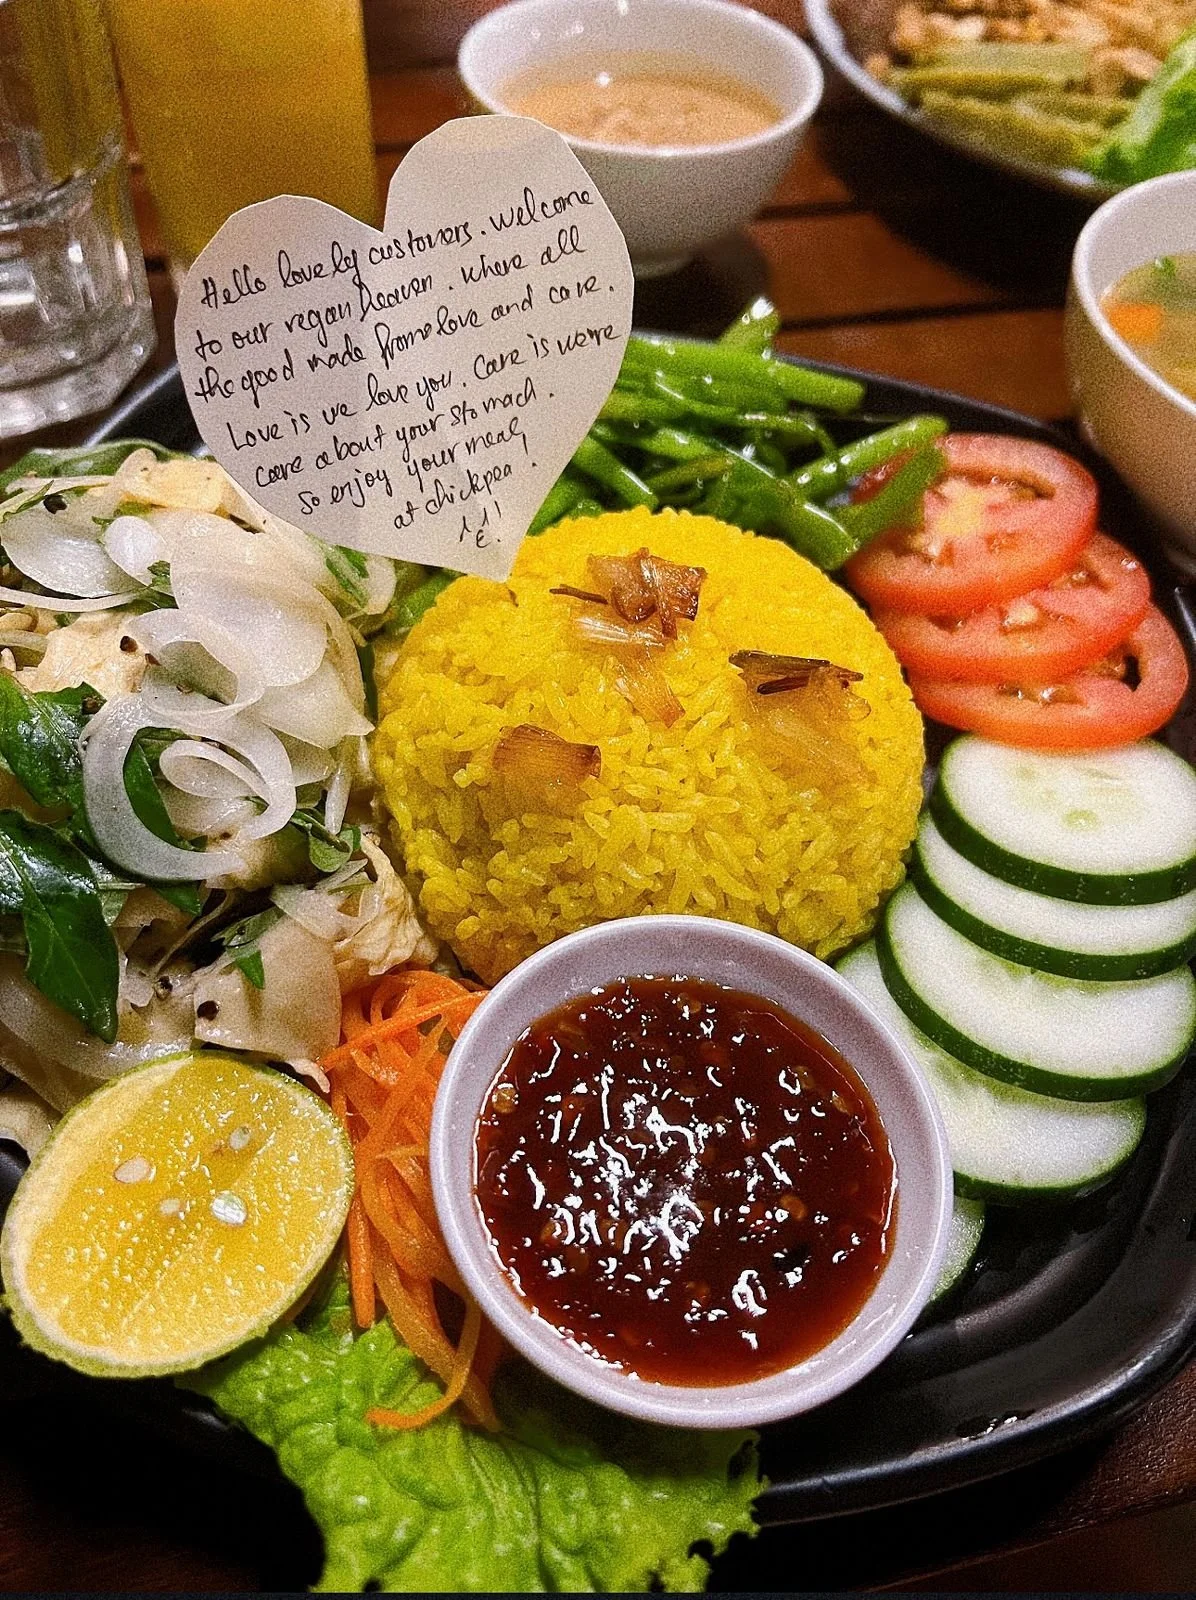 Hello lovely customers. Welcome
to our vegan heaven. where all
the good made from love and care.
Love is we love you. Care is we're
care about your stomach.
So enjoy your meal
at chickpea!